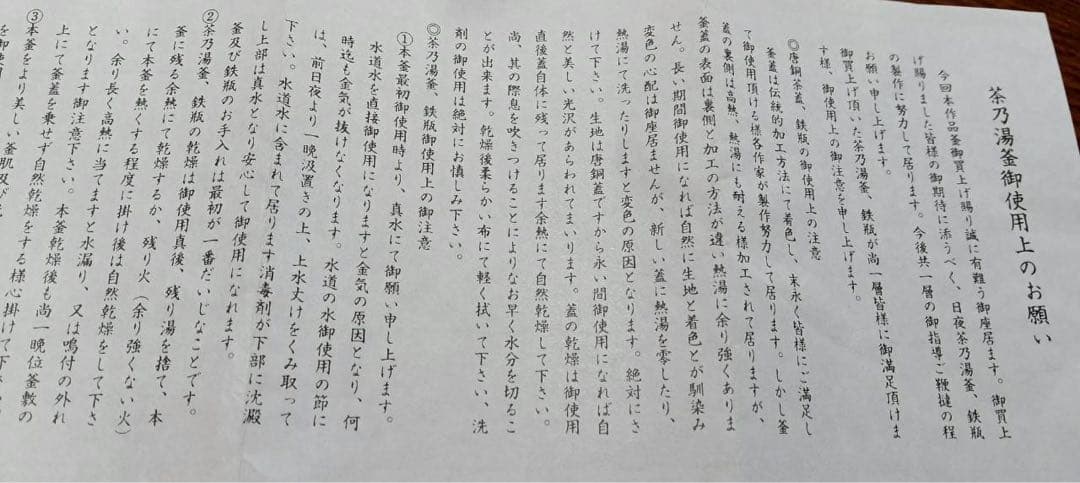 茶乃湯釜御使用上のお願い
今回本作品釜御買上げ賜り誠に有難う御座居ます。御買上
げ賜りました皆様の御期待に添うべく、日夜茶乃湯釜、鉄瓶
の製作に努力して居ります。今後共一層の御指導ご鞭撻の程
お願い申し上げます。
御買上げ頂いた茶乃湯釜、鉄瓶が尚一層皆様に御満足頂けま
す様、御使用上の御注意を申し上げます。
◎唐銅茶蓋、鉄瓶の御使用上の注意
釜蓋は伝統的加工方法にて着色し、末永く皆様にご満足し
て御使用頂ける様各作家が製作努力して居ります。しかし釜
蓋の裏側は高熱、熱湯にも耐える様加工されて居りますが、
釜蓋の表面は裏側と加工の方法が違い熱湯に余り強くありま
せん。長い期間御使用になれば自然に生地と着色とが馴染み
変色の心配は御座居ませんが、新しい蓋に熱湯を零したり、
熱湯にて洗ったりしますと変色の原因となります。絶対にさ
けて下さい。生地は唐銅蓋ですから永い間御使用になれば自
然と美しい光沢があらわれてまいります。蓋の乾燥は御使用
直後蓋自体に残って居ります余熱にて自然乾燥して下さい。
尚、其の際息を吹きつけることによりなお早く水分を切るこ
とが出来ます。乾燥後柔らかい布にて軽く拭いて下さい、洗
剤の御使用は絶対にお慎しみ下さい。
◎茶乃湯釜、鉄瓶御使用上の御注意
①本釜最初御使用時より、真水にて御願い申し上げます。
水道水を直接御使用になりますと金気の原因となり、何
時迄も金気が抜けなくなります。水道の水御使用の節に
は、前日夜より一晩汲置きの上、上水丈けをくみ取って
下さい。水道水に含まれて居ります消毒剤が下部に沈澱
し上部は真水となり安心して御使用になれます。
釜及び鉄瓶のお手入れは最初が一番だいじなことです。
②茶乃湯釜、鉄瓶の乾燥は御使用真後、残り湯を捨て、本
釜に残る余熱にて乾燥するか、残り火（余り強くない火）
にて本釜を熱くする程度に掛け後は自然乾燥をして下さ
い。余り長く高熱に当てますと水漏り、又は鳴付の外れ
となります御注意下さい。本釜乾燥後も尚一晩位釜敷の
上にて釜蓋を乗せず自然乾燥をする様心掛けて下さ
③本釜をより美しい釜肌及び